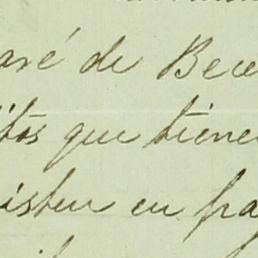 aré de Bece
itos que tiene
isten en pa